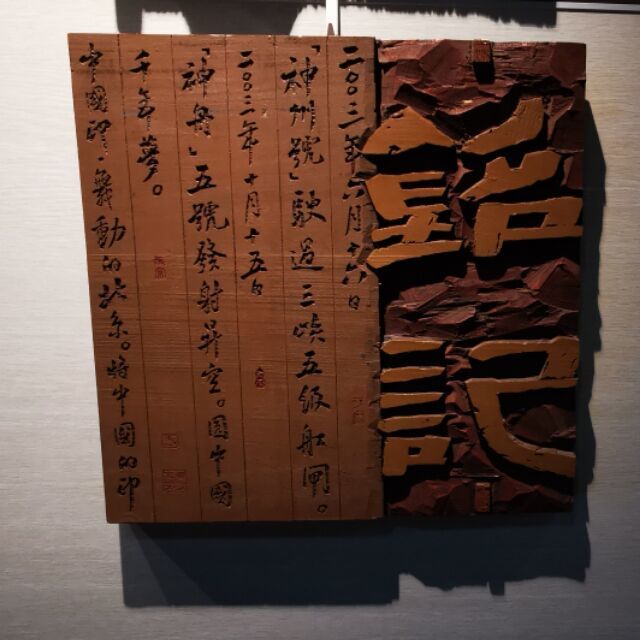 銘記
二〇〇三年六月十六日
「神州號」駛過三峽五級船閘。
二〇〇三年十月十五日
「神舟」五號發射昇空。圓中國
千年夢。
中國印·舞動的北京。將中國的印